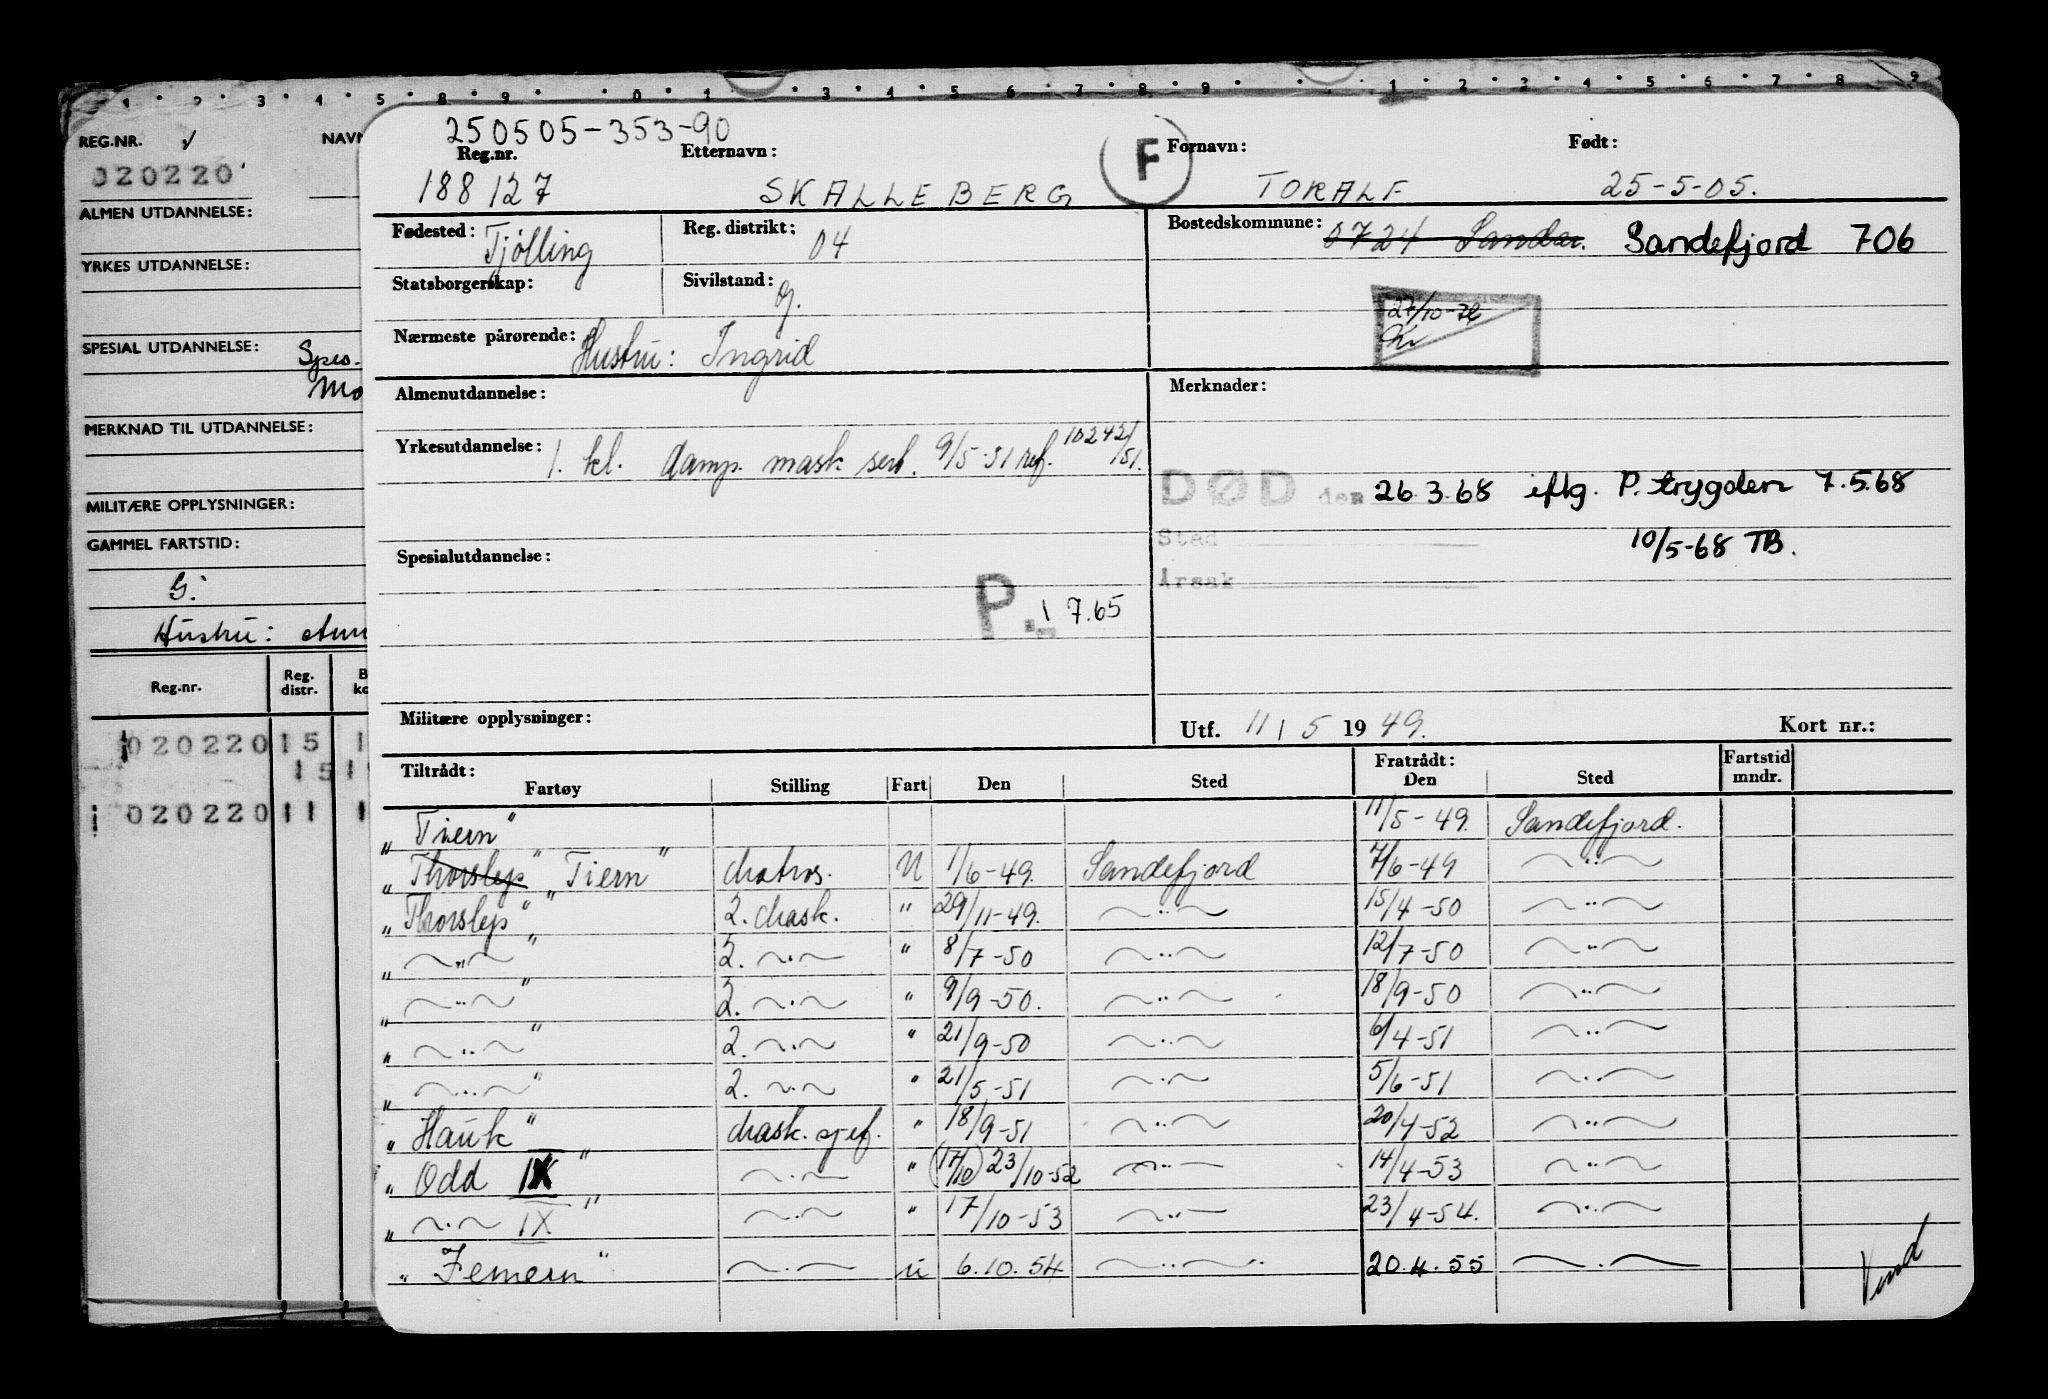 1 2 3 4 5 8 9 0 1 3 4 5 6 7 8 9 1 2 3 4 5 6 7 8 9
REG.NR. NAVN
020220
ALMEN UTDANNELSE:
YRKES UTDANNELSE:
SPESIAL UTDANNELSE: Spes.
MERKNAD TIL UTDANNELSE:
MILITÆRE OPPLYSNINGER:
GAMMEL FARTSTID:
G.
Hustru:
Reg.nr. Reg. distr.
020220 15 1
15 1
020220 11 1
250505-353-90
Reg.nr. Etternavn: F Fornavn: Født:
188127 SKALLEBERG TORALF 25-5-05.
Fødested: Tjølling Reg. distrikt: 04 Bostedskommune: 0724 Sandar. Sandefjord 706
Statsborgerskap: Sivilstand: g.
27/10-72
Nærmeste pårørende: Hustru: Ingrid
Almenutdannelse: Merknader:
Yrkesutdannelse: 1. kl. damp. mask sert. 9/5-51 ref. 10242/51.
DØD den 26.3.68 iflg. P.trygden 7.5.68
Sted 10/5-68 TB.
Spesialutdannelse: Årsak
P. 1 7.65
Militære opplysninger: Utf. 11/5 1949. Kort nr.:
Tiltrådt: Fratrådt: Fartstid
Fartøy Stilling Fart Den Sted Den Sted mndr.
„Tiern" 11/5-49. Sandefjord.
„Thorslep" „Tiern" Matros. U 1/6-49. Sandefjord 7/6-49 —〃—
„Thorslep" 2. Mask. " 29/11-49. —〃— 15/4-50 —〃—
„—〃—" 2. —〃— " 8/7-50 —〃— 12/7-50 —〃—
„—〃—" 2. —〃— " 9/9-50. —〃— 18/9-50 —〃—
„—〃—" 2. —〃— " 21/9-50 —〃— 6/4-51 —〃—
„—〃—" 2. —〃— " 21/5-51 —〃— 5/6-51 —〃—
„Hauk" Mask. sjef. " 18/9-51 —〃— 20/4-52 —〃—
„Odd IX" —〃— " (17/10) 23/10-52 —〃— 14/4-53 —〃—
„—〃— IX" —〃— " 17/10-53 —〃— 23/4-54. —〃—
„Femern" —〃— u 6.10.54 —〃— 20.4.55 —〃—
Vend